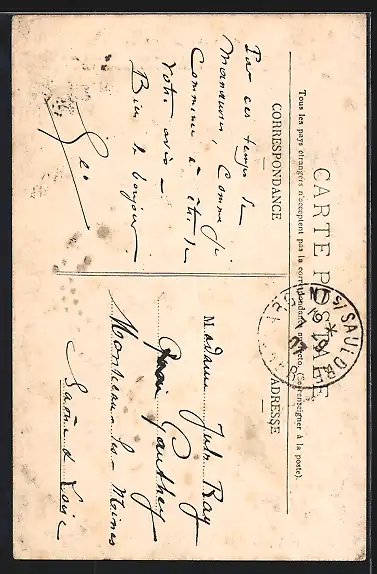 CARTE POSTALE
Tous les pays étrangers n'acceptent pas la correspondance au recto. (Se renseigner à la poste).
CORRESPONDANCE
ADRESSE
Par ces temps de
Manœuvres, Comme je
Commence à être de
votre avis —
Bien le bonjour
Geo
Madame Jules Ray
Quai Gauthey
Montceau-les-Mines
Saône & Loire